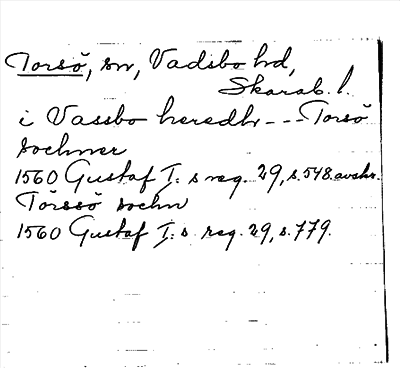 Torsö, sn, Vadsbo hd,
Skarab. l.
i Vassbo heredhr --- Torsö
sochner
1560 Gustaf I:s reg. 29, s. 548. avskr.
Torssö sochn
1560 Gustaf I:s reg. 29, s. 779.